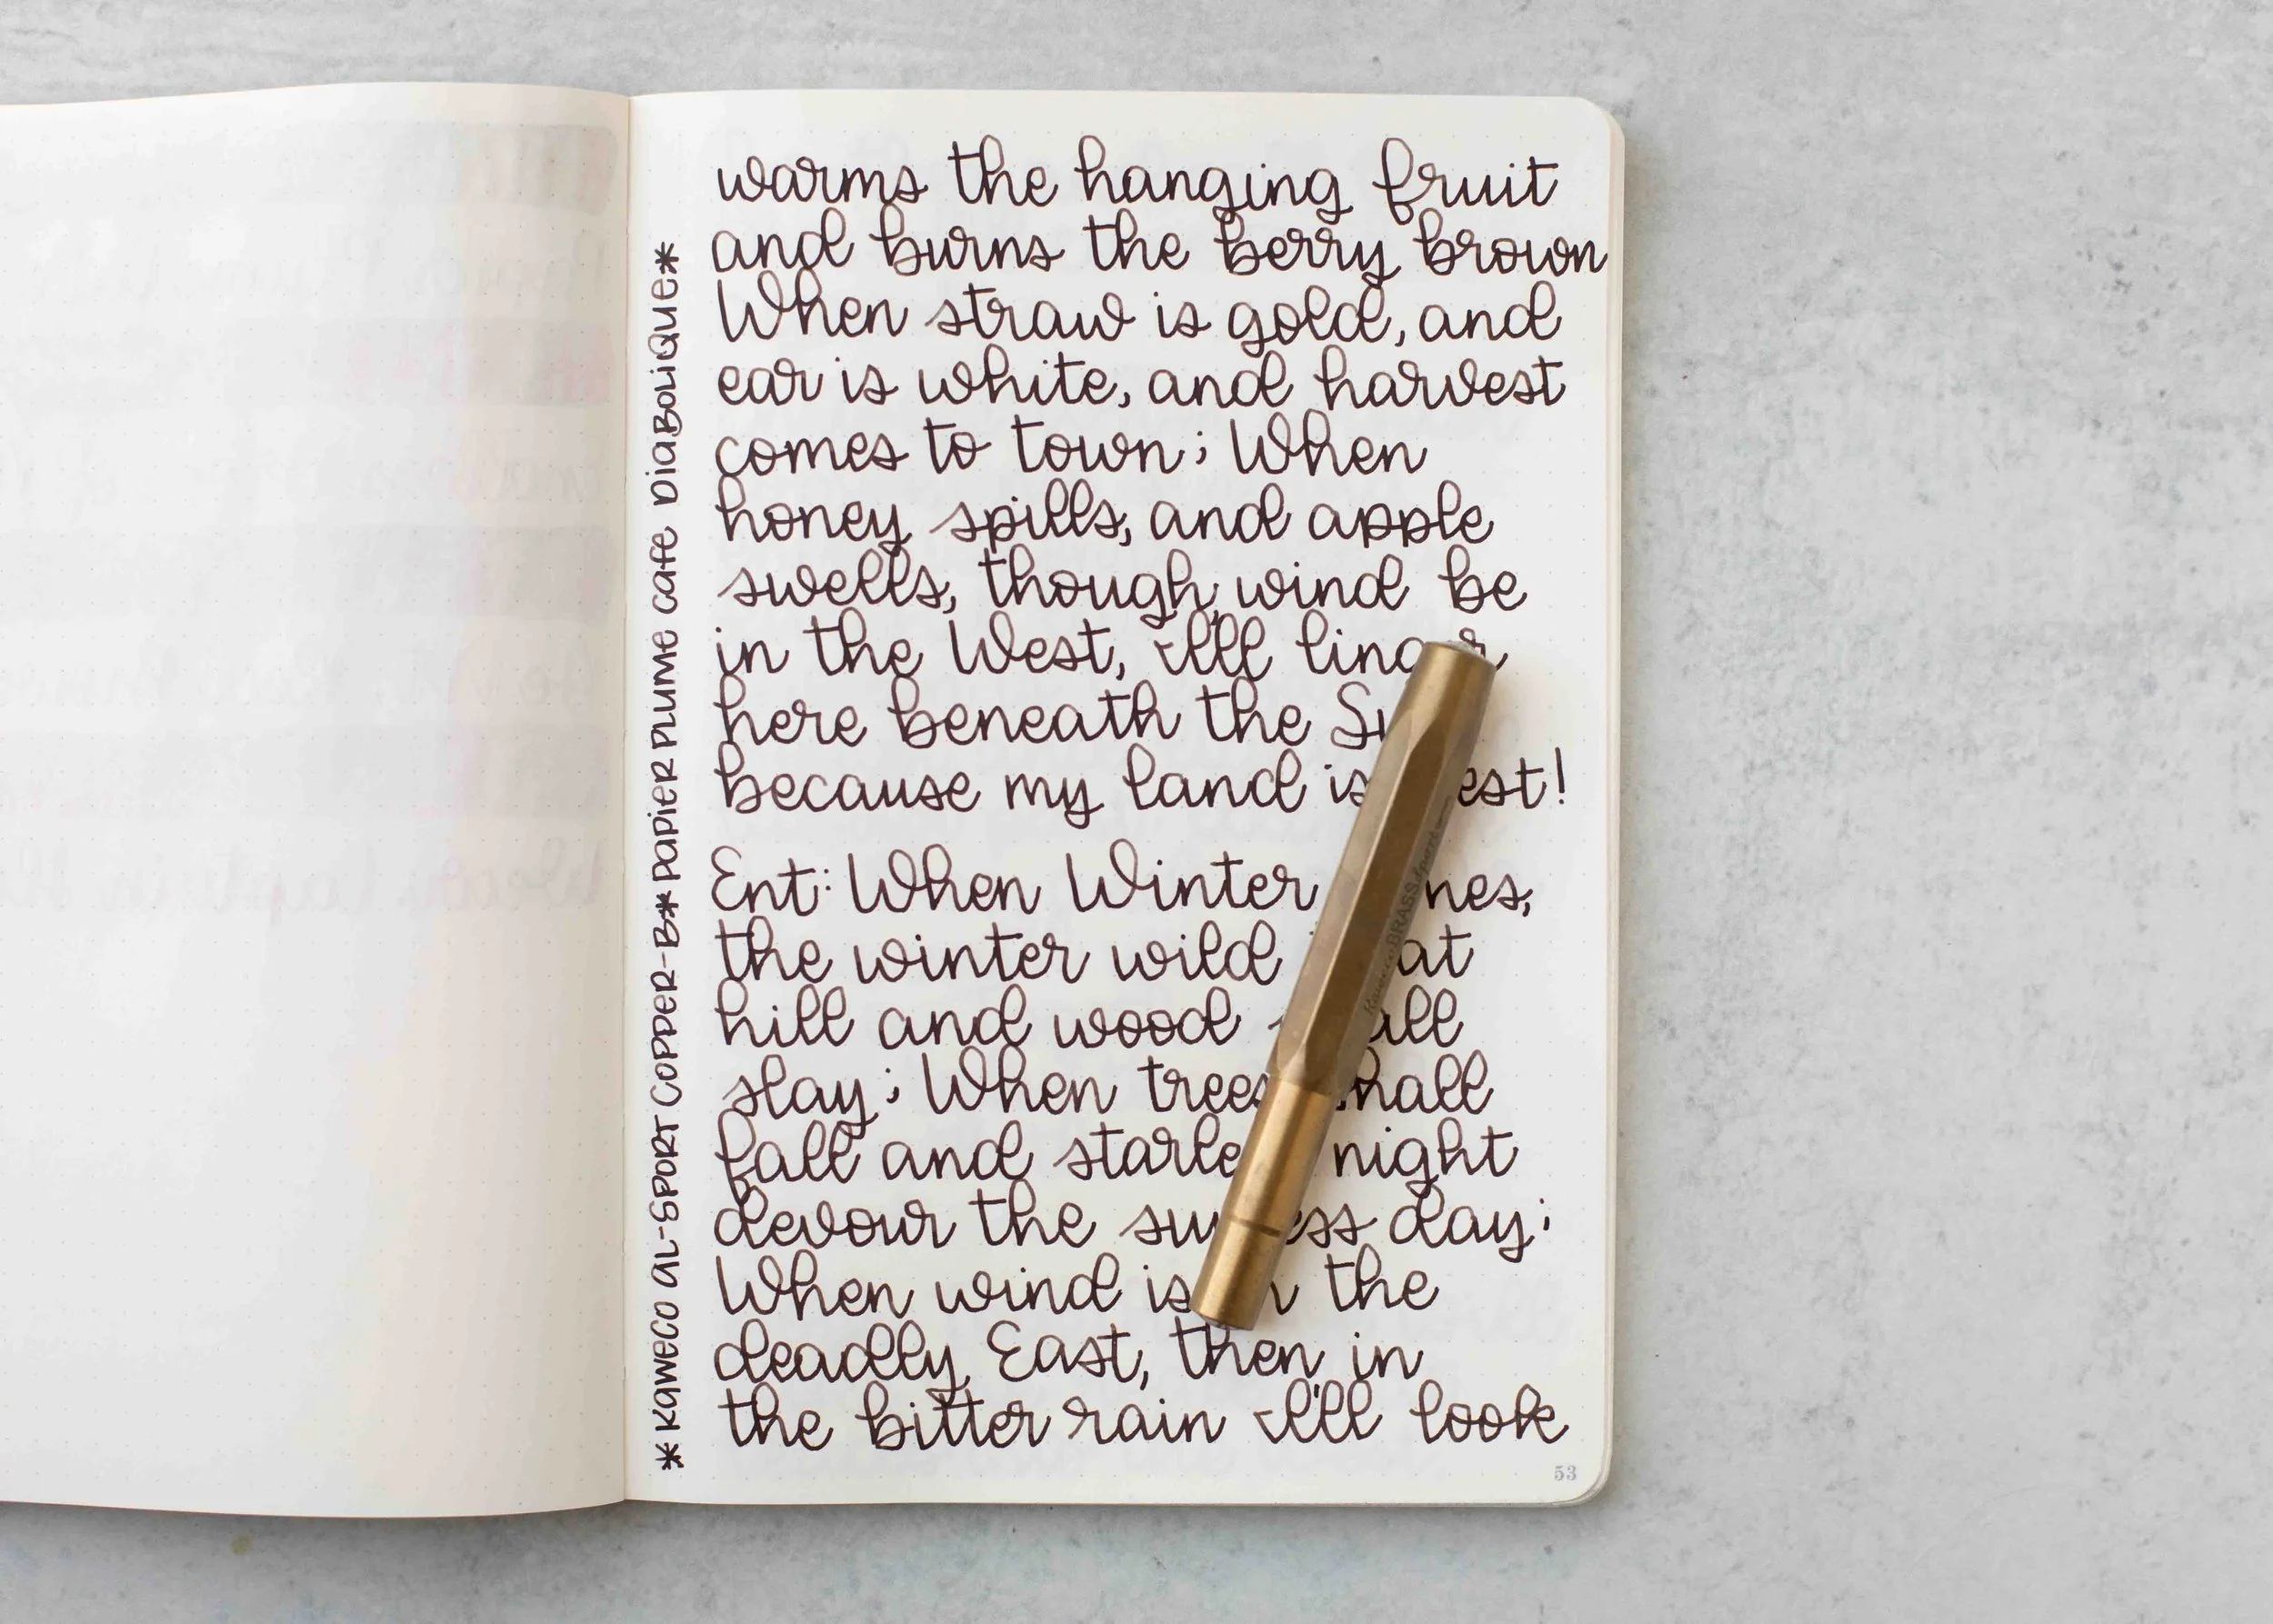 warms the hanging fruit
and burns the berry brown
When straw is gold, and
ear is white, and harvest
comes to town; When
honey spills, and apple
swells, though wind be
in the West, I'll
here beneath the
because my land is
Ent: When Winter
the winter wild
hill and wood
slay; When trees
fall and night
devour the day;
When wind is the
deadly East, then in
the bitter rain I'll look
53
*Kaweco AL-Sport Copper-B*Papier Plume Cafe Diabolique*
Kaweco BRASS Sport